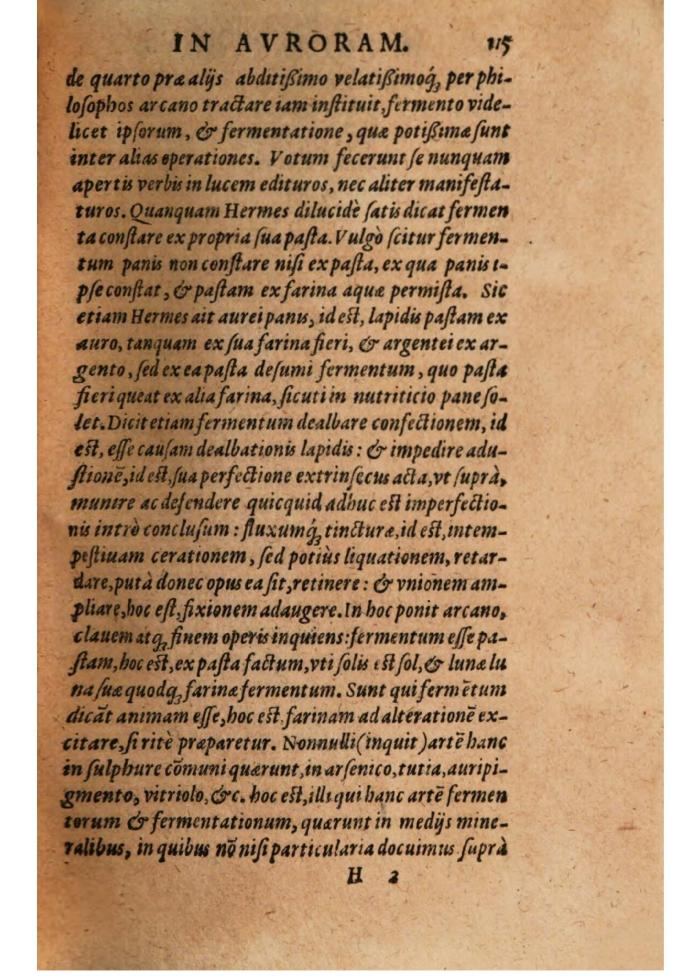 IN AVRORAM. 115
de quarto præ alijs abditißimo velatißimoq́; per phi-
losophos arcano tractare iam instituit, fermento vide-
licet ipsorum, & fermentatione, quæ potißimæ sunt
inter alias operationes. Votum fecerunt se nunquam
apertis verbis in lucem edituros, nec aliter manifesta-
turos. Quanquam Hermes dilucidè satis dicat fermen
ta constare ex propria sua pasta. Vulgò scitur fermen-
tum panis non constare nisi ex pasta, ex qua panis i-
pse constat, & pastam ex farina aquæ permista. Sic
etiam Hermes ait aurei panis, id est, lapidis pastam ex
auro, tanquam ex sua farina fieri, & argentei ex ar-
gento, sed ex ea pasta desumi fermentum, quo pasta
fieri queat ex alia farina, sicuti in nutriticio pane so-
let. Dicit etiam fermentum dealbare confectionem, id
est, esse causam dealbationis lapidis: & impedire adu-
stionē, id est, sua perfectione extrinsecus acta, vt suprà,
munire ac defendere quicquid adhuc est imperfectio-
nis intrò conclusum: fluxumq́; tincturæ, id est, intem-
pestiuam cerationem, sed potiùs liquationem, retar-
dare, putà donec opus ea sit, retinere: & vnionem am-
pliare, hoc est, fixionem adaugere. In hoc ponit arcano,
clauem atq; finem operis inquiens: fermentum esse pa-
stam, hoc est, ex pasta factum, vti solis est sol, & lunæ lu
na suæ quodq; farinæ fermentum. Sunt qui fermētum
dicāt animam esse, hoc est farinam ad alterationē ex-
citare, si ritè præparetur. Nonnulli (inquit) artē hanc
in sulphure cōmuni quærunt, in arsenico, tutia, auripi-
gmento, vitriolo, &c. hoc est, illi qui hanc artē fermen
torum & fermentationum, quærunt in medijs mine-
ralibus, in quibus nō nisi particularia docuimus suprà
H 2